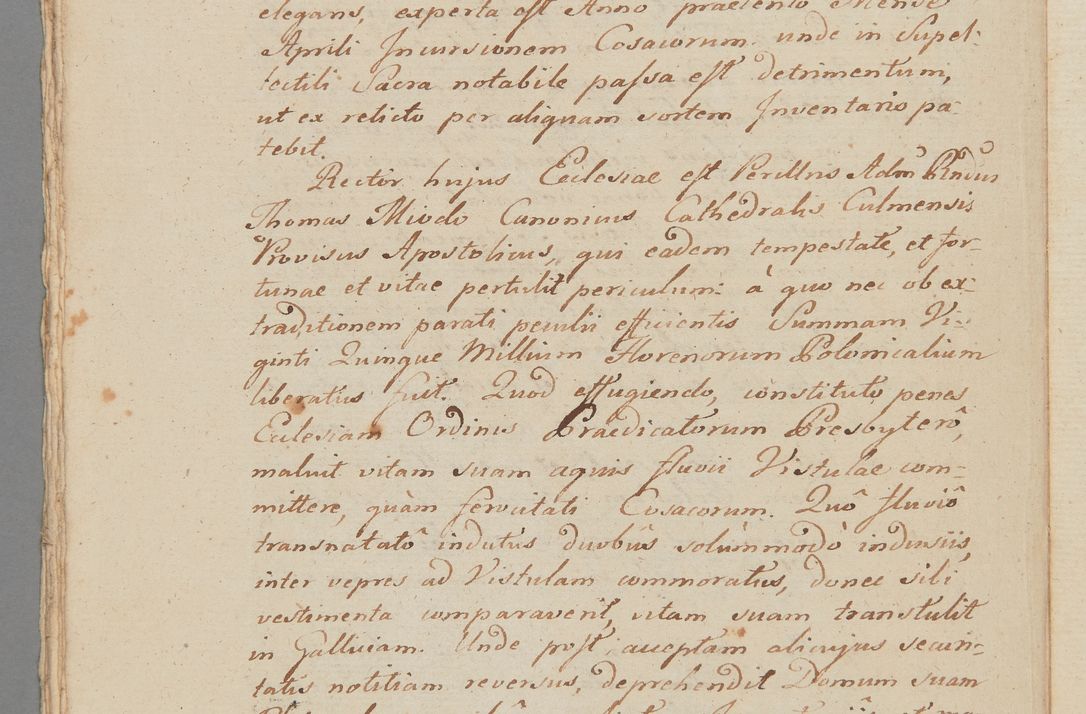 elegans, experta est Anno praetento Mense
Aprili Incursionem Cosacorum. unde in Supel-
lectili Sacra notabile passa est detrimentum,
ut ex relicto per aliquam sortem Inventario pa-
tebit.
Rector hujus Ecclesiae est Perillris Adm Rndus
Thomas Miodo Canonicus Cathedralis Culmensis
Provisus Apostolicus, qui eadem tempestate, et for-
tunae et vitae pertulit periculum: à quo nec ob ex-
traditionem parati peculii efficientis Summam Vi-
ginti Quinque Millium Florenorum Polonicalium
liberatus fuit. Quod effugiendo, constituto penes
Ecclesiam Ordinis Praedicatorum Presbyterô,
maluit vitam suam aquis fluvii Vistulae com-
mittere, quàm ferocitati Cosacorum. Quô fluviô
transnatatô indutus duobûs solùmmodò indusiis,
inter vepres ad Vistulam commoratus, donec sili
vestimenta comparaverit, vitam suam transtulit
in Galliciam. Unde post acceptam alicujus securi-
tatis notitiam reversus, deprehendit Domum suam